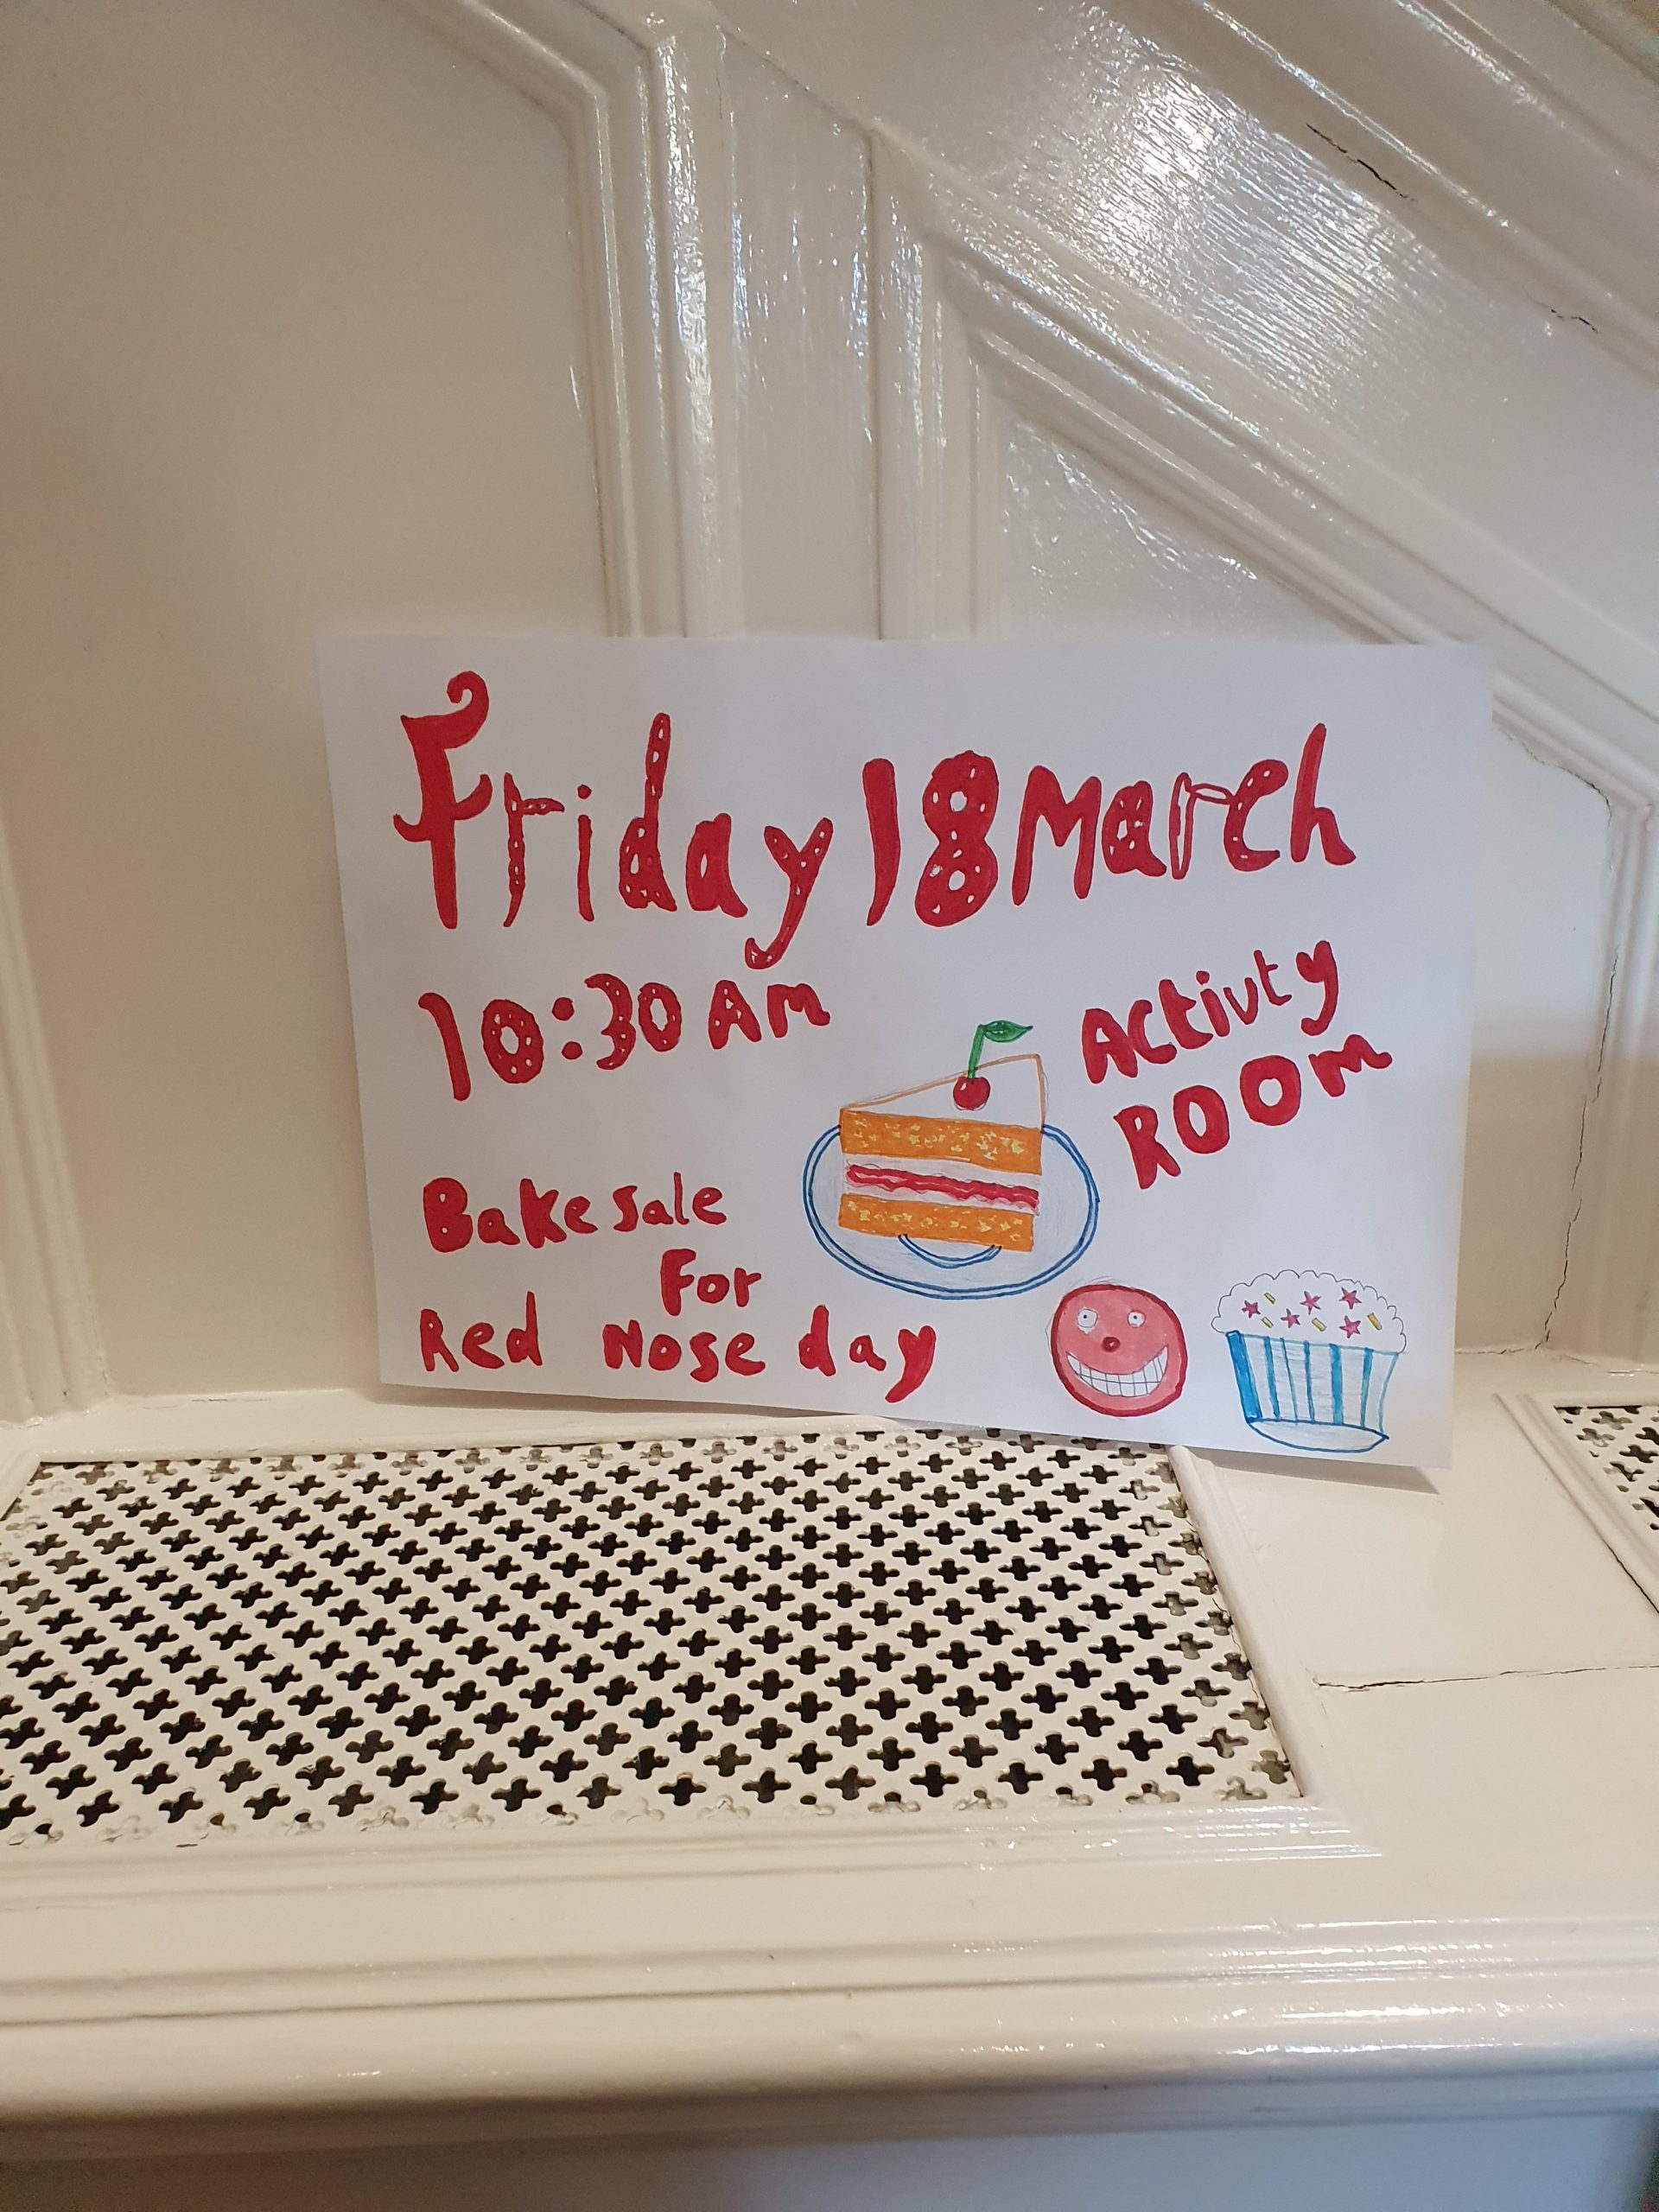 Friday 18 March
10:30 Am
Activty
ROOm
Bake sale
For
Red Nose day